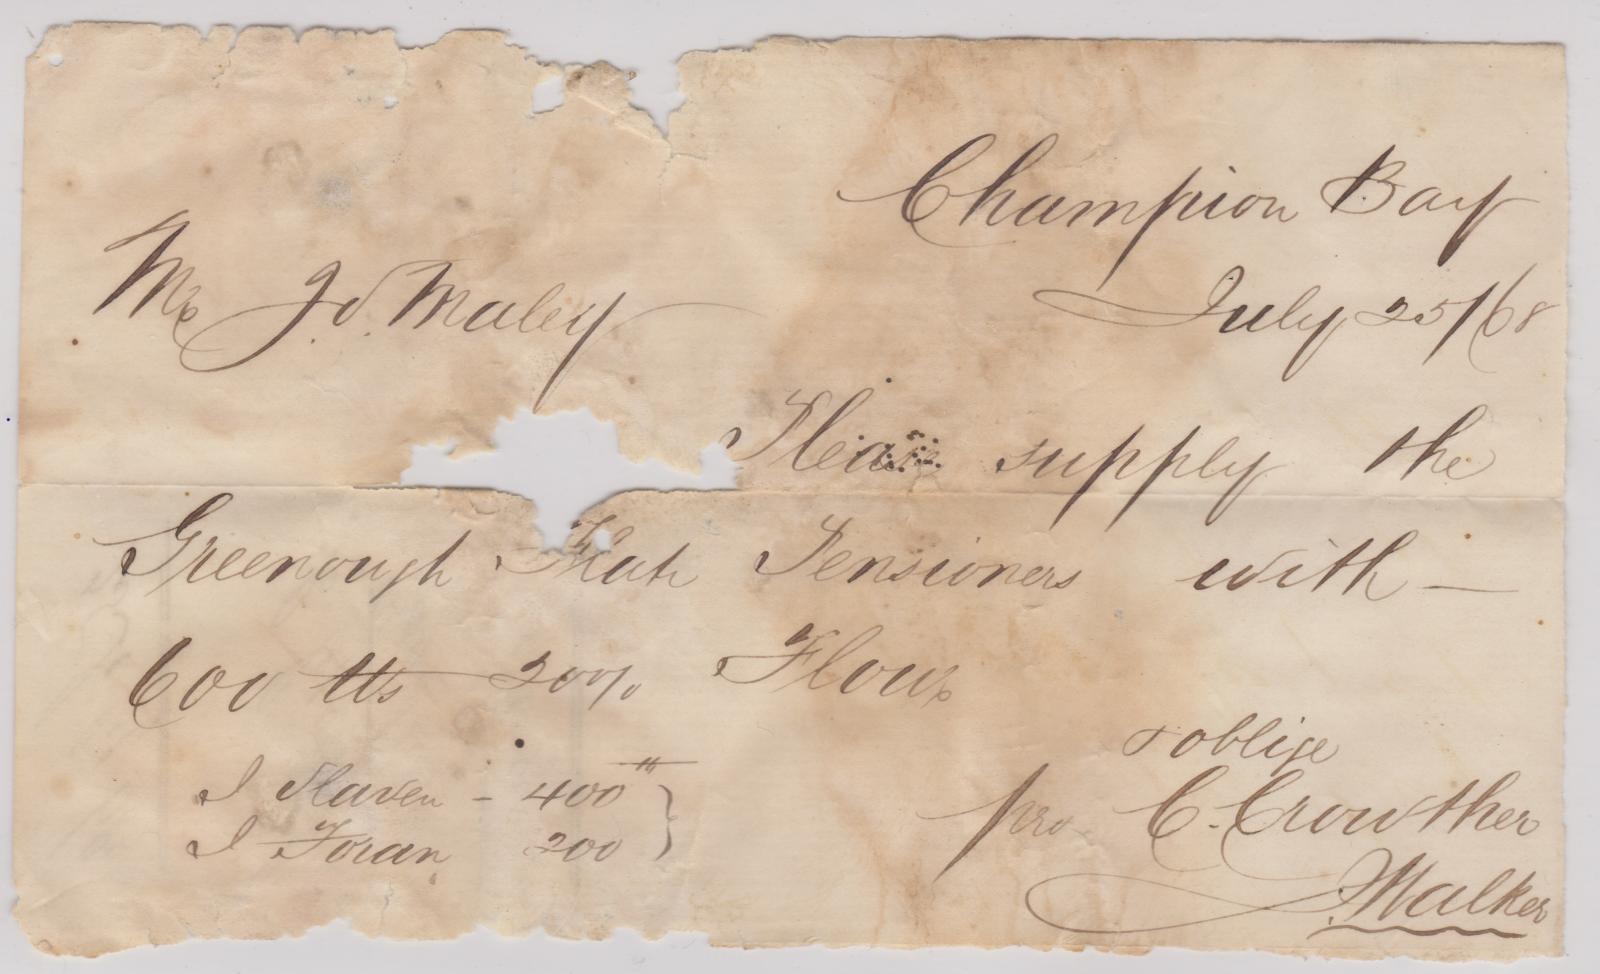 Champion Bay
July 25/68
Mr Jo. Maley
Please supply the
Greenough Flats Pensioners with —
600 lbs 20% Flour
& oblige
J Slaven - 400 lb
pro C. Crowther
J Foran 200
Walker